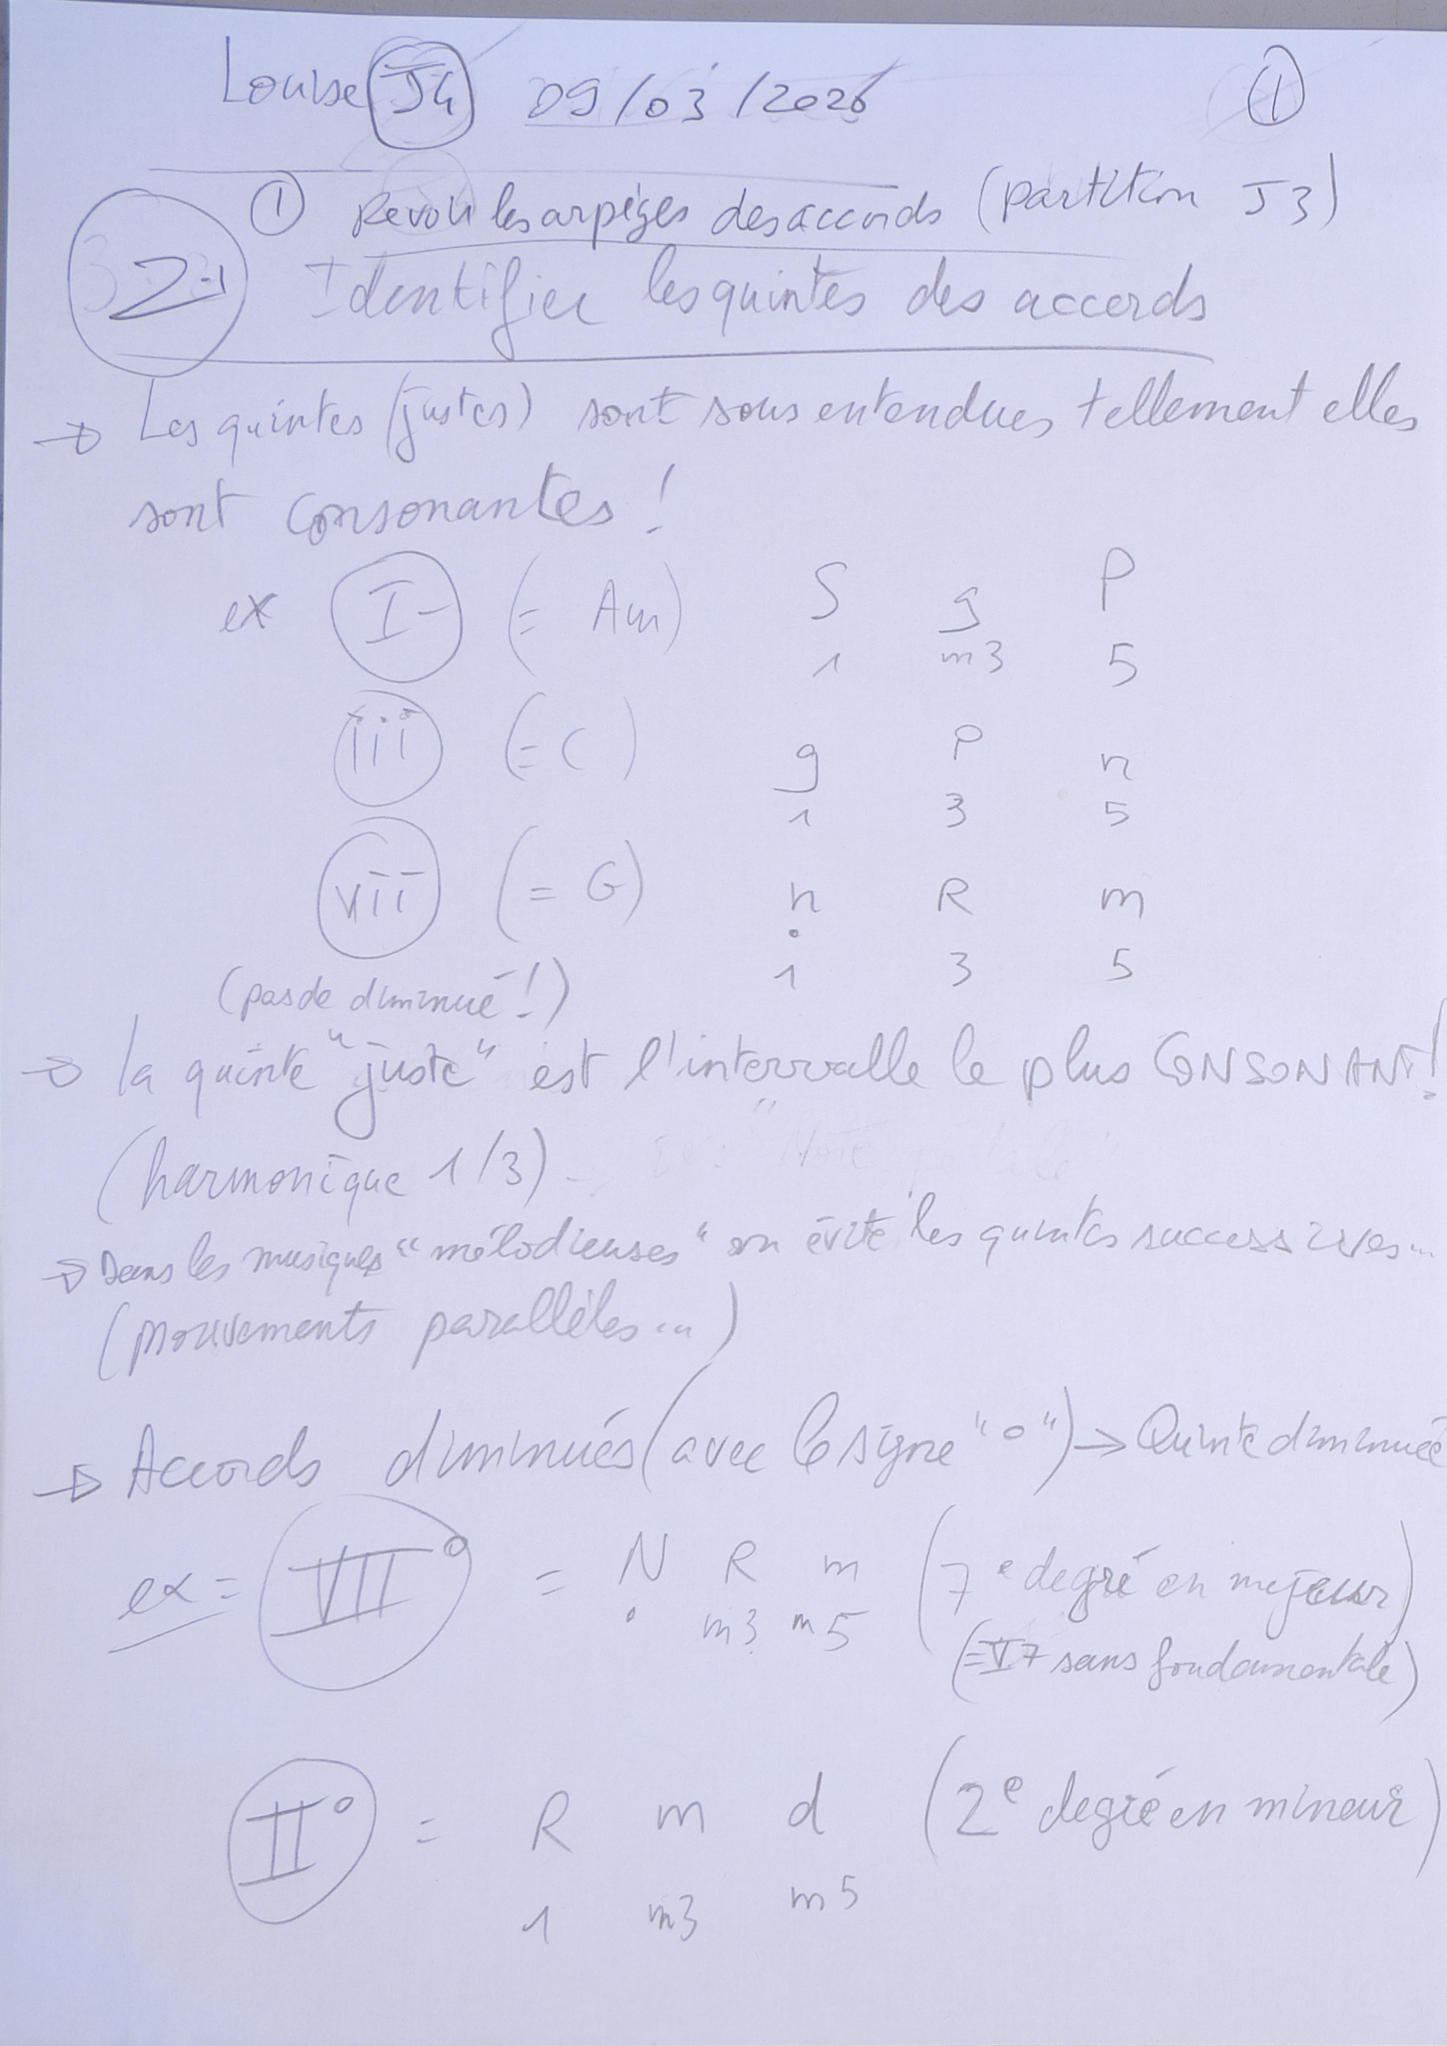 Louise J4 09/03/2026 1
1 Revoir les arpèges des accords (partition J3)
2-1 Identifier les quintes des accords
→ Les quintes (justes) sont sous entendues tellement elles
sont consonantes !
ex I- (= Am) S g P
1 m3 5
iii (= C) g P n
1 3 5
vii (= G) n R m
1 3 5
(pas de diminué !)
→ la quinte "juste" est l'intervalle le plus CONSONANT !
(harmonique 1/3)
→ Dans les musiques "mélodieuses" on évite les quintes successives...
(mouvements parallèles...)
→ Accords diminués (avec le signe "o") → Quinte diminuée
ex = VII° = N R m (7e degré en majeur)
m3 m5 (= V7 sans fondamentale)
II° = R m d (2e degré en mineur)
1 m3 m5